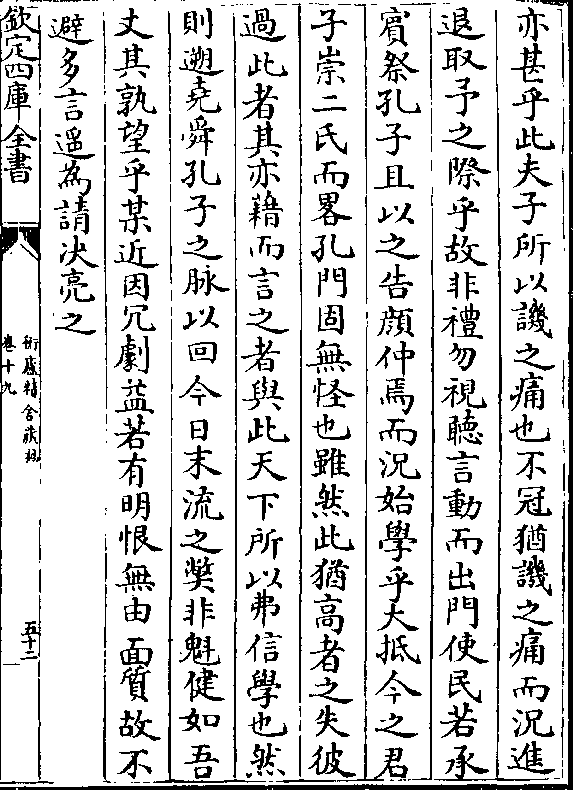 亦甚乎此夫子所以譏之痛也不冠猶譏之痛而況進
退取予之際乎故非禮勿視聽言動而出門使民若承
賓祭孔子且以之告顔仲焉而況始學乎大抵今之君
子崇二氏而畧孔門固無怪也雖然此猶高者之失彼
過此者其亦藉而言之者與此天下所以弗信學也然
則遡堯舜孔子之脉以回今日末流之獘非魁健如吾
丈其孰望乎某近因冗劇益若有明恨無由面質故不
避多言遥為請决亮之
欽定四庫全書
衡廬精舍藏稿
卷十九
五十二